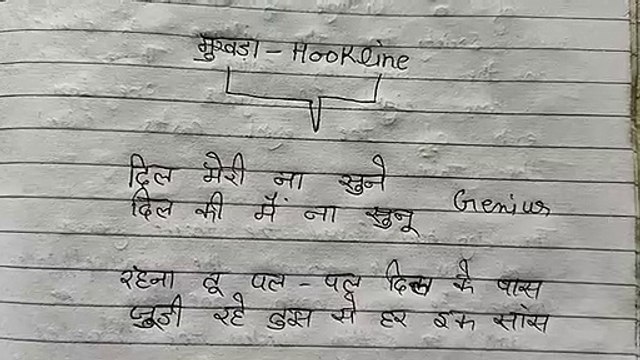 मुखड़ा - Hookline
दिल मेरी ना सुने
दिल की मैं ना सुनू Genius
रहना तू पल - पल दिल के पास
जुड़ी रहे तुझ से हर इक सांस